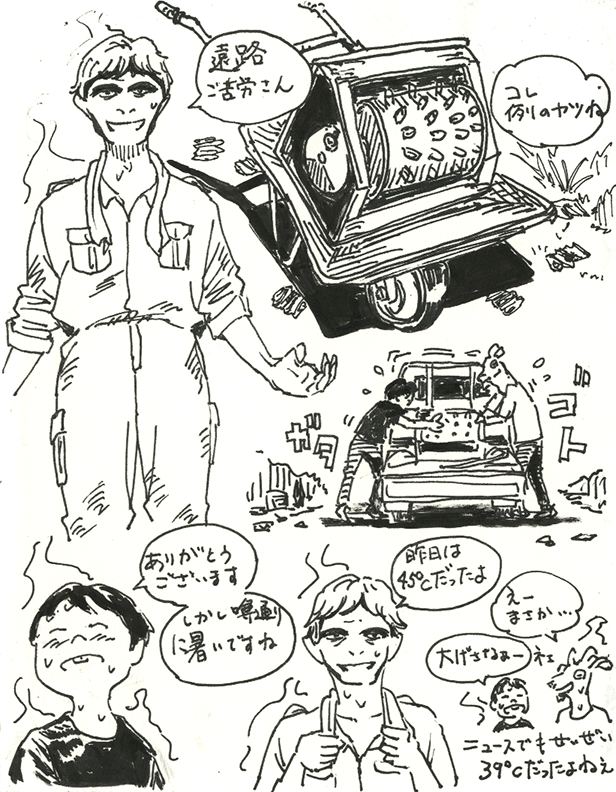 遠路
ご苦労さん
コレ
例のヤツね
ガタ
ゴト
ありがとう
ございます
しかし噂通り
に暑いですね
昨日は
45℃だったよ
えー
まさか…
大げさなぁー
ネェ
ニュースでもせいぜい
39℃だったよねぇ